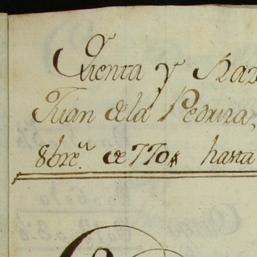 Cuenta y Raz
Juan de la Pedruza,
8bre. de 770. hasta